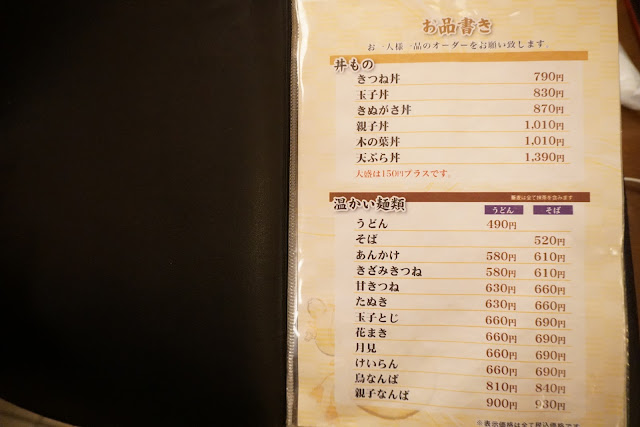 お品書き
お一人様一品のオーダーをお願い致します。
丼もの
きつね丼 790円
玉子丼 830円
きぬがさ丼 870円
親子丼 1,010円
木の葉丼 1,010円
天ぷら丼 1,390円
大盛は150円プラスです。
温かい麺類
うどん そば
うどん 490円
そば 520円
あんかけ 580円 610円
きざみきつね 580円 610円
甘きつね 630円 660円
たぬき 630円 660円
玉子とじ 660円 690円
花まき 660円 690円
月見 660円 690円
けいらん 660円 690円
鳥なんば 810円 840円
親子なんば 900円 930円
※表示価格は全て税込価格です